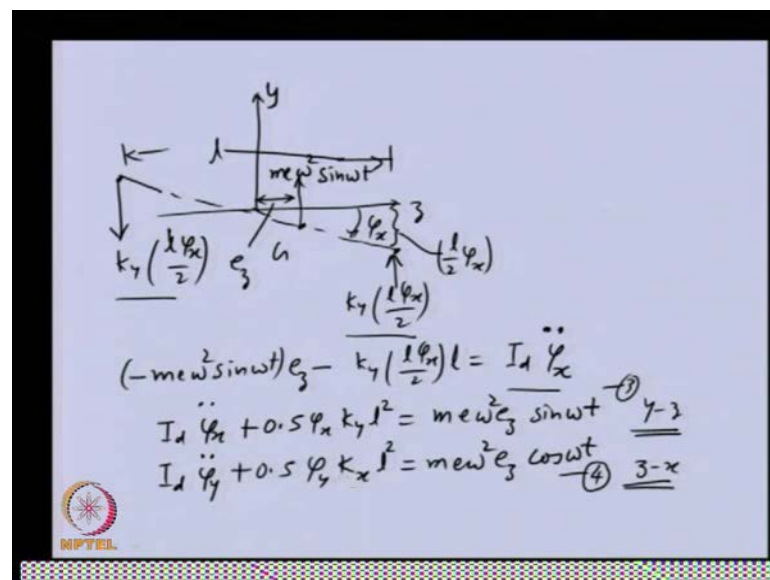 y
l
meω² sinωt
z
φₓ
k_y (lφₓ/2) e_z G (l/2 φₓ)
k_y (lφₓ/2)
(-meω² sinωt) e_z - k_y (lφₓ/2) l = I_d φ̈ₓ
I_d φ̈ₓ + 0.5 φₓ k_y l² = meω² e_z sinωt -③ y-z
I_d φ̈_y + 0.5 φ_y kₓ l² = meω² e_z cosωt -④ z-x
NPTEL